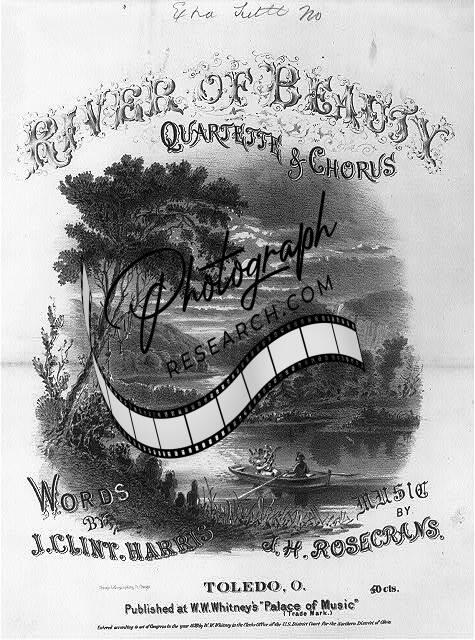 Edna
No
RIVER OF BEAUTY
QUARTETTE & CHORUS
Photograph
RESEARCH.COM
WORDS
BY
J. CLINT. HARRIS
MUSIC
BY
J. H. ROSECRANS.
TOLEDO, O.
40 cts.
Published at W.W. Whitney's "Palace of Music"
(Trade Mark.)
Entered according to act of Congress in the year by W.W. Whitney in the Clerks Office of the U.S. District Court for the Northern District of Ohio